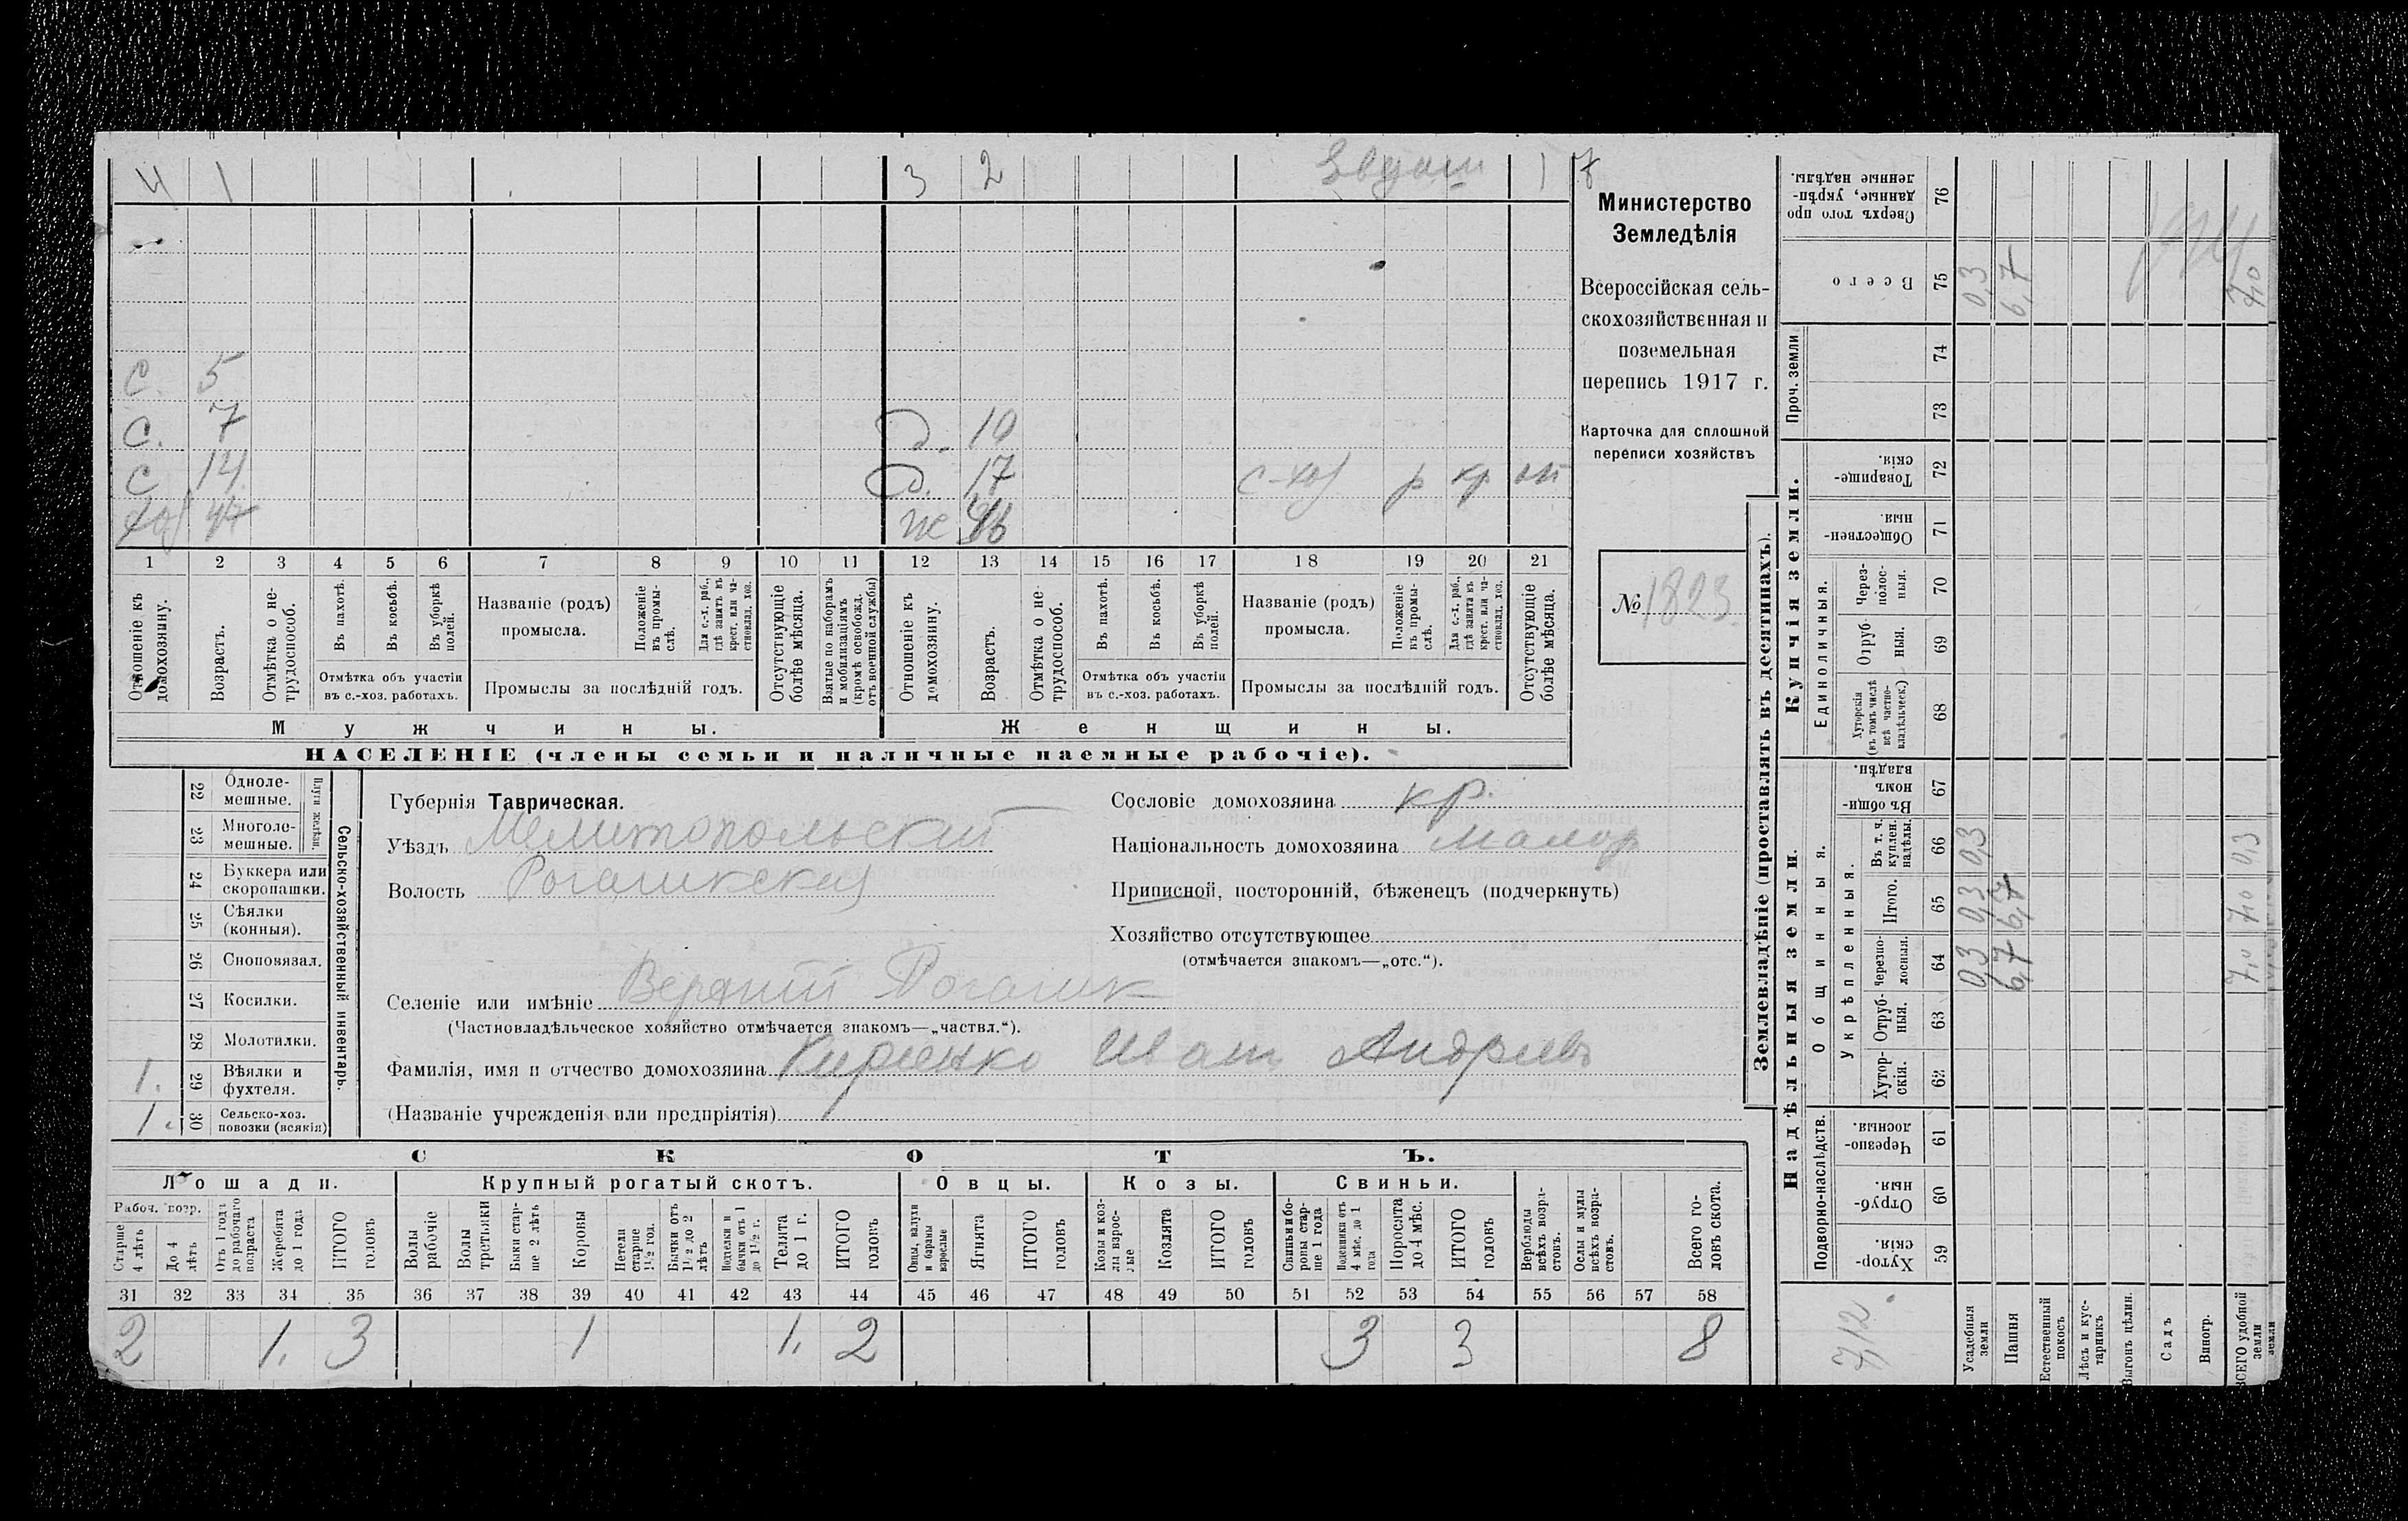 4 1 3 2 1 7
с. 5
с. 7 д. 10
с 14 д. 17 с-хоз р кр
хоз 47 ж
1 2 3 4 5 6 7 8 9 10 11 12 13 14 15 16 17 18 19 20 21
Отношеніе къ домохозяину.
Возрастъ.
Отмѣтка о нетрудоспособ.
Въ пахотѣ.
Въ косьбѣ.
Въ уборкѣ полей.
Отмѣтка объ участіи
въ с.-хоз. работахъ.
Названіе (родъ)
промысла.
Положеніе въ промыслѣ.
Для с.-х. раб., гдѣ занятъ въ крест. или частновлад. хоз.
Промыслы за послѣдній годъ.
Отсутствующіе болѣе мѣсяца.
Взятые по наборамъ и мобилизаціямъ (кромѣ освобожд. отъ военной службы)
Отношеніе къ домохозяину.
Возрастъ.
Отмѣтка о нетрудоспособ.
Въ пахотѣ.
Въ косьбѣ.
Въ уборкѣ полей.
Отмѣтка объ участіи
въ с.-хоз. работахъ.
Названіе (родъ)
промысла.
Положеніе въ промыслѣ.
Для с.-х. раб., гдѣ занята въ крест. или частновлад. хоз.
Промыслы за послѣдній годъ.
Отсутствующіе болѣе мѣсяца.
Мужчины. Женщины.
НАСЕЛЕНІЕ (члены семьи и наличные наемные рабочіе).
Министерство
Земледѣлія
Всероссійская сель-
скохозяйственная и
поземельная
перепись 1917 г.
Карточка для сплошной
переписи хозяйствъ
№ 1823
Сельско-хозяйственный инвентарь.
Плуги желѣзн.
22 Одноле-
мешные.
23 Многоле-
мешные.
24 Буккера или
скоропашки.
25 Сѣялки
(конныя).
26 Сноповязал.
27 Косилки.
28 Молотилки.
1. 29 Вѣялки и
фухтеля.
1. 30 Сельско-хоз.
повозки (всякія)
Губернія Таврическая.
Уѣздъ Мелитопольскій
Волость Рогачикская
Сословіе домохозяина кр.
Національность домохозяина малор
Приписной, посторонній, бѣженецъ (подчеркнуть)
Хозяйство отсутствующее
(отмѣчается знакомъ—„отс.“).
Селеніе или имѣніе Верхній Рогачик
(Частновладѣльческое хозяйство отмѣчается знакомъ—„частвл.“).
Фамилія, имя и отчество домохозяина Кириенко Иван Андреев
(Названіе учрежденія или предпріятія)
СКОТЪ.
Лошади. Крупный рогатый скотъ. Овцы. Козы. Свиньи.
Рабоч. возр.
Старше 4 лѣтъ
До 4 лѣтъ
Отъ 1 года до рабочаго возраста
Жеребята до 1 года
ИТОГО головъ
Волы рабочіе
Волы третьяки
Быки старше 2 лѣтъ
Коровы
Нетели старше 1½ год.
Бычки отъ 1½ до 2 лѣтъ
Подтелки и бычки отъ 1 до 1½ г.
Телята до 1 г.
ИТОГО головъ
Овцы, валухи и бараны взрослые
Ягнята
ИТОГО головъ
Козы и козлы взрослые
Козлята
ИТОГО головъ
Свиньи и боровы старше 1 года
Подсвинки отъ 4 мѣс. до 1 года
Поросята до 4 мѣс.
ИТОГО головъ
Верблюды всѣхъ возрастовъ.
Ослы и мулы всѣхъ возрастовъ.
Всего головъ скота.
31 32 33 34 35 36 37 38 39 40 41 42 43 44 45 46 47 48 49 50 51 52 53 54 55 56 57 58
2 1. 3 1 1. 2 3 3 8
Землевладѣніе (проставлять въ десятинахъ).
Надѣльныя земли. Купчія земли. Проч. земли
Подворно-наслѣдств. Общинныя. Единоличныя.
Укрѣпленныя.
59 Хуторскія.
60 Отрубныя.
61 Черезполосныя.
62 Хуторскія.
63 Отрубныя.
64 черезполосныя.
65 Итого.
66 Въ т. ч. куплен. надѣлы.
67 Въ общинномъ владѣн.
68 Хуторскія (въ томъ числѣ всѣ частновладѣльческ.)
69 Отрубныя.
70 Черезполосныя.
71 Общественныя.
72 Товарищескія.
73
74
75 Всего
76 Сверхъ того проданные, укрѣпленные надѣлы.
7,12.
Усадебныя земли 0,3 0,3 0,3 0,3
Пашня 6,7 6,7 6,7
Естественный покосъ
Лѣсъ и кустарникъ
Выгонъ цѣлин.
Садъ
Виногр.
ВСЕГО удобной земли 7,0 7,0 0,3 7,0